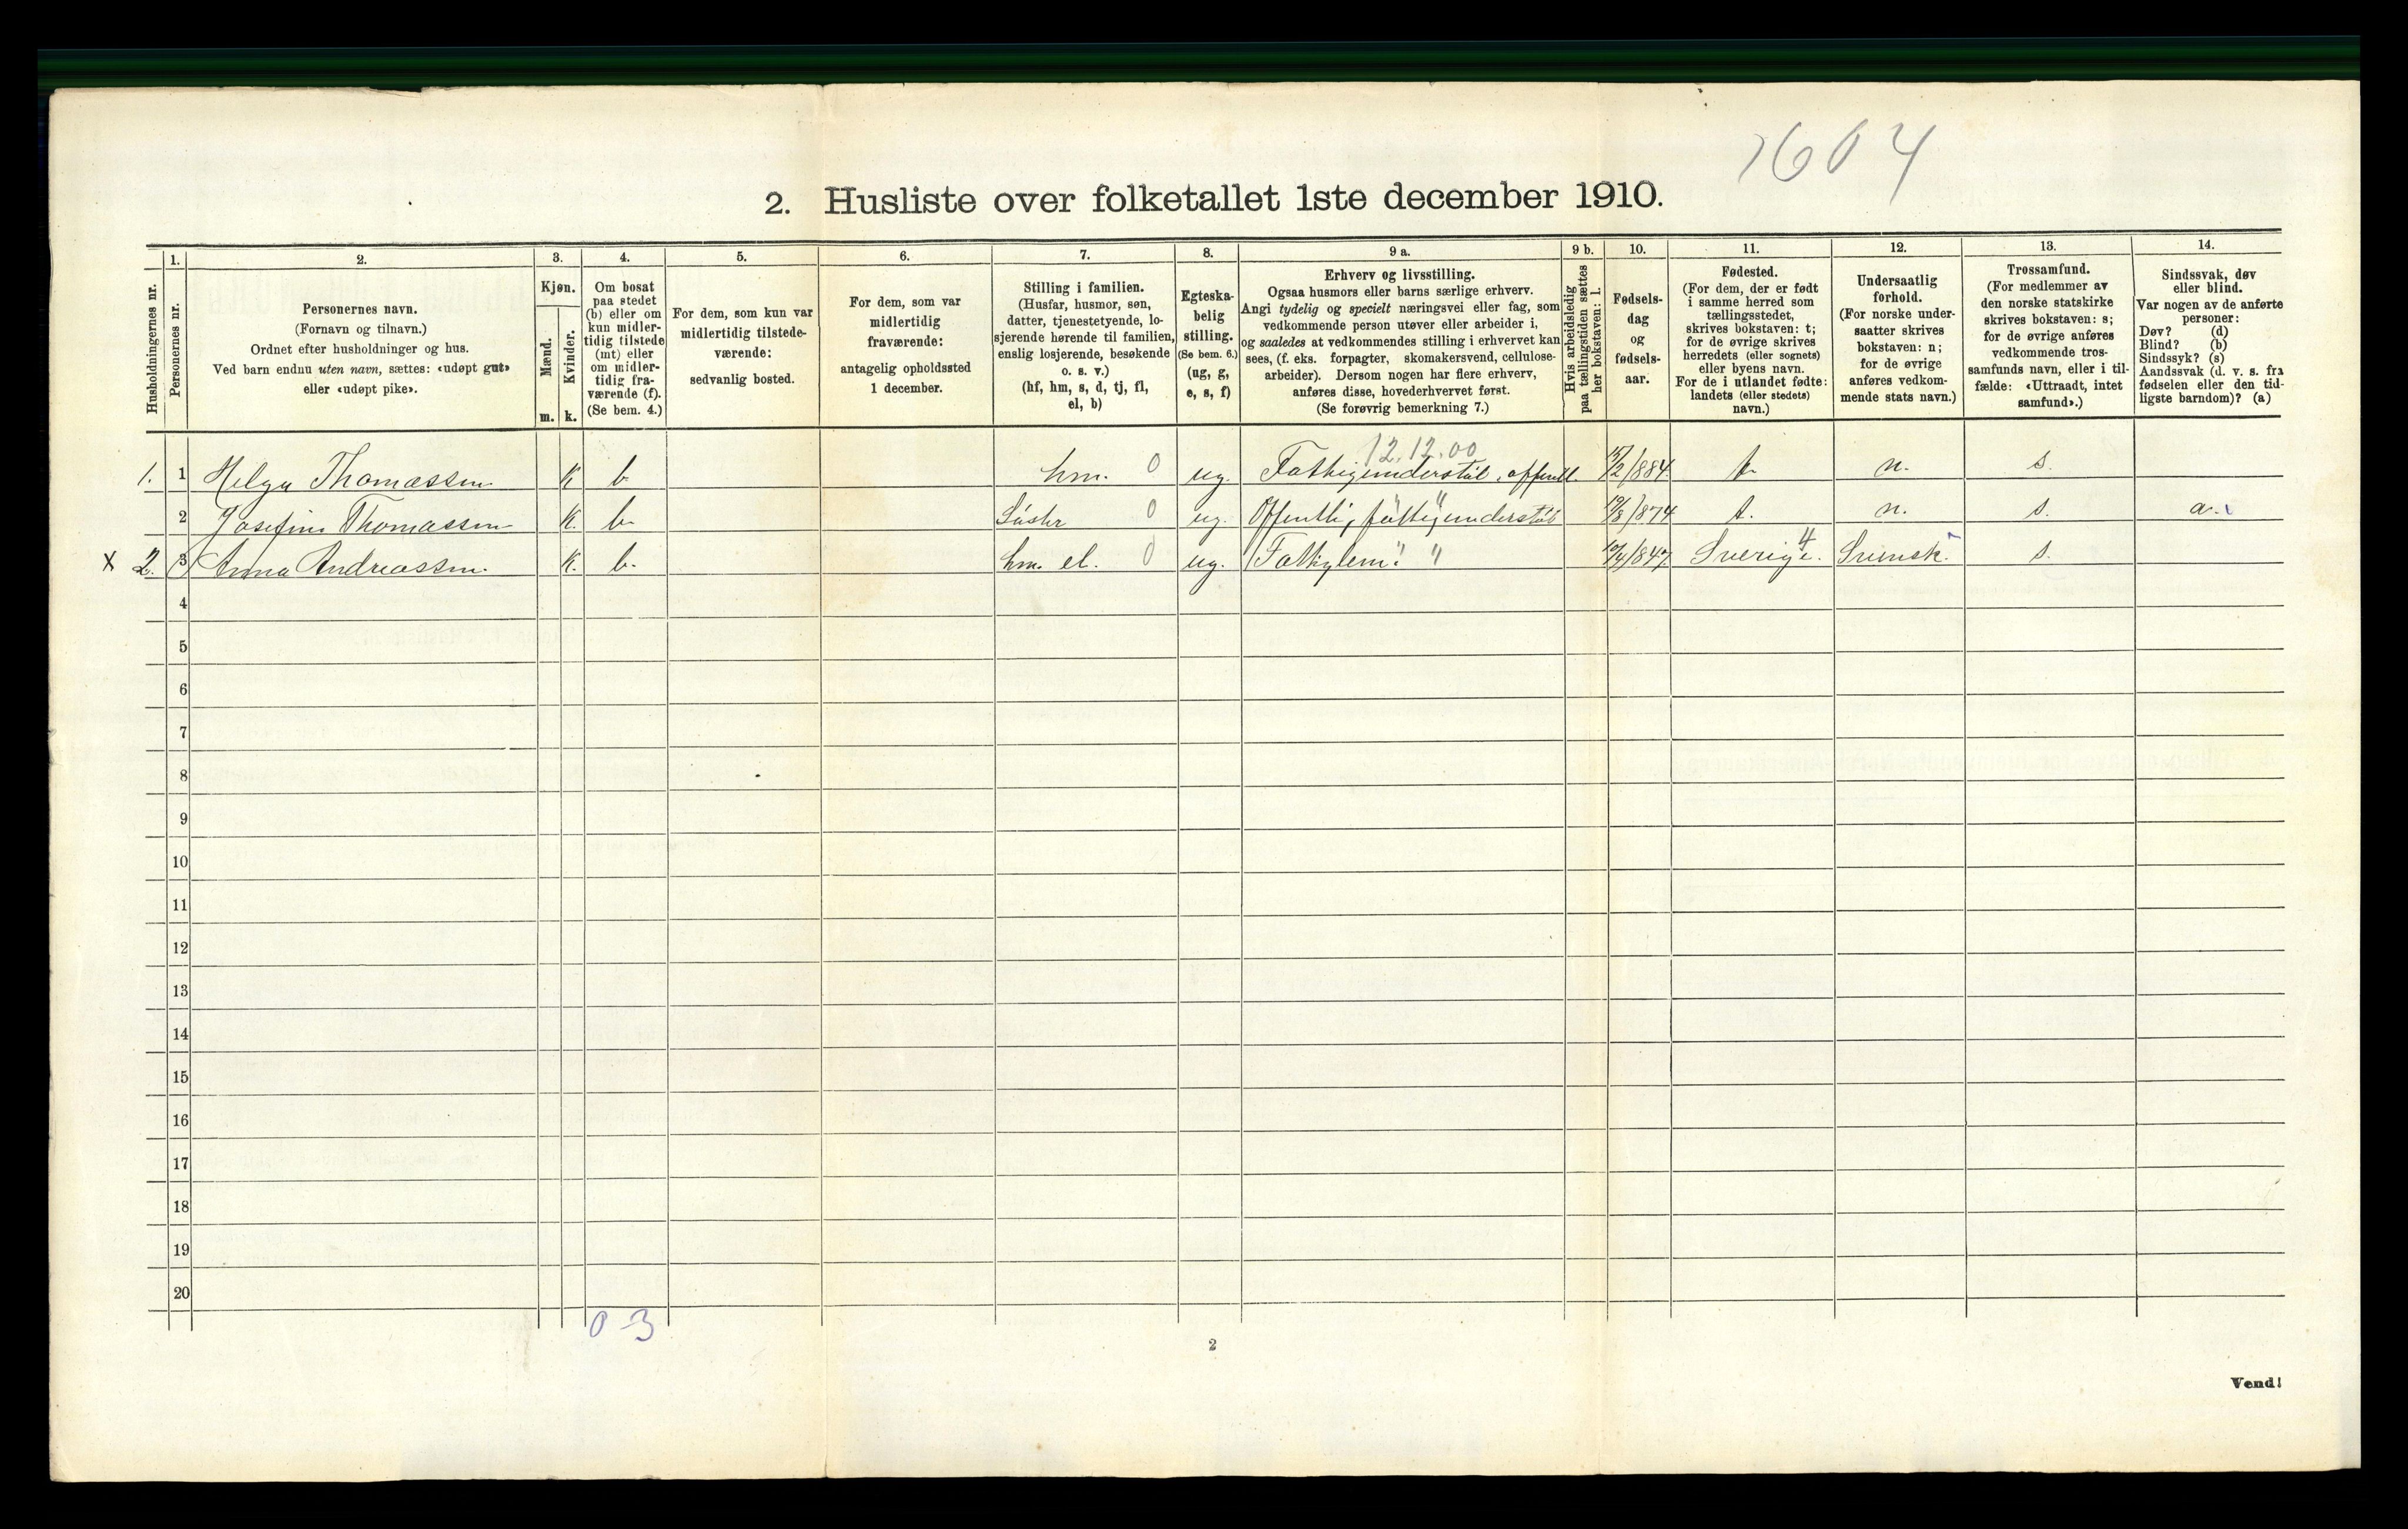 1604
2. Husliste over folketallet 1ste december 1910.
1. 2. 3. 4. 5. 6. 7. 8. 9 a. 9 b. 10. 11. 12. 13. 14.
Husholdningernes nr.
Personernes nr.
Personernes navn.
(Fornavn og tilnavn.)
Ordnet efter husholdninger og hus.
Ved barn endnu uten navn, sættes: «udøpt gut»
eller «udøpt pike».
Kjøn.
Mænd.
Kvinder.
m. k.
Om bosat
paa stedet
(b) eller om
kun midler-
tidig tilstede
(mt) eller
om midler-
tidig fra-
værende (f).
(Se bem. 4.)
For dem, som kun var
midlertidig tilstede-
værende:
sedvanlig bosted.
For dem, som var
midlertidig
fraværende:
antagelig opholdssted
1 december.
Stilling i familien.
(Husfar, husmor, søn,
datter, tjenestetyende, lo-
sjerende hørende til familien,
enslig losjerende, besøkende
o. s. v.)
(hf, hm, s, d, tj, fl,
el, b)
Egteska-
belig
stilling.
(Se bem. 6.)
(ug, g,
e, s, f)
Erhverv og livsstilling.
Ogsaa husmors eller barns særlige erhverv.
Angi tydelig og specielt næringsvei eller fag, som
vedkommende person utøver eller arbeider i,
og saaledes at vedkommendes stilling i erhvervet kan
sees, (f. eks. forpagter, skomakersvend, cellulose-
arbeider). Dersom nogen har flere erhverv,
anføres disse, hovederhvervet først.
(Se forøvrig bemerkning 7.)
Hvis arbeidsledig
paa tællingstiden sættes
her bokstaven: l.
Fødsels-
dag
og
fødsels-
aar.
Fødested.
(For dem, der er født
i samme herred som
tællingsstedet,
skrives bokstaven: t;
for de øvrige skrives
herredets (eller sognets)
eller byens navn.
For de i utlandet fødte:
landets (eller stedets)
navn.)
Undersaatlig
forhold.
(For norske under-
saatter skrives
bokstaven: n;
for de øvrige
anføres vedkom-
mende stats navn.)
Trossamfund.
(For medlemmer av
den norske statskirke
skrives bokstaven: s;
for de øvrige anføres
vedkommende tros-
samfunds navn, eller i til-
fælde: «Uttraadt, intet
samfund».)
Sindssvak, døv
eller blind.
Var nogen av de anførte
personer:
Døv? (d)
Blind? (b)
Sindssyk? (s)
Aandssvak (d. v. s. fra
fødselen eller den tid-
ligste barndom)? (a)
12.12.00
1. 1 Helga Thomassen K b hm. 0 ug. Fattigunderstøt. offentl. 15/2/884 t. n. s.
2 Josefine Thomassen K. b. Søster 0 ug. Offentli, fattigunderstøt 19/8/874 t. n. s. a.
x 2. 3 Anna Andreassen. K. b. hm. el. 0 ug. Fattiglem " " /4/847 Sverige. 4 Svensk. s.
4
5
6
7
8
9
10
11
12
13
14
15
16
17
18
19
20
0 3
2
Vend!